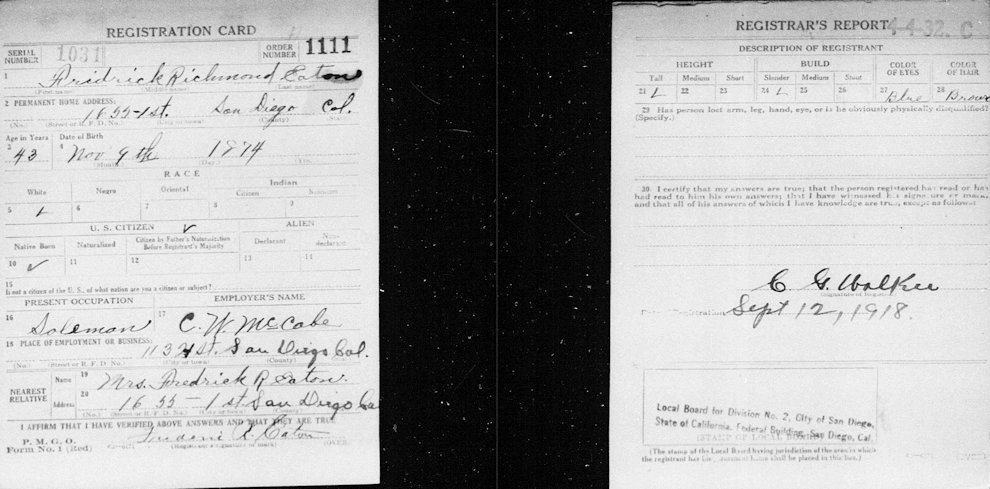 REGISTRATION CARD
SERIAL NUMBER 1031 ORDER NUMBER 1111
1 Fridrick Richmond Eaton
(First name) (Middle name) (Last name)
2 PERMANENT HOME ADDRESS:
1655-1st. San Diego Cal.
(No.) (Street or R. F. D. No.) (City or town) (County)
Age in Years Date of Birth
3 43 4 Nov 9th 1874
(Month.) (Day.) (Yr.)
RACE
White Negro Oriental Indian
Citizen Noncitizen
5 L 6 7 8 9
U. S. CITIZEN ✓ ALIEN
Native Born Naturalized Citizen by Father's Naturalization Before Registrant's Majority Declarant Non-declarant
10 ✓ 11 12 13 14
15
Is not a citizen of the U. S., of what nation are you a citizen or subject?
PRESENT OCCUPATION EMPLOYER'S NAME
16 Saleman 17 C. W. McCabe
18 PLACE OF EMPLOYMENT OR BUSINESS:
San Diego Cal.
(No.) (Street or R. F. D. No.) (City or town) (County)
NEAREST RELATIVE Name 19 Mrs. Fredrick R Eaton.
Address 20 1655 - 1st San Diego Ca
(No.) (Street or R. F. D. No.) (City or town) (County)
I AFFIRM THAT I HAVE VERIFIED ABOVE ANSWERS AND THAT THEY ARE TRUE
P. M. G. O.
Form No. 1 (Red) R. Eaton
(Registrant's signature or mark) (OVER)
REGISTRAR'S REPORT 4-4-32. C
DESCRIPTION OF REGISTRANT
HEIGHT BUILD COLOR OF EYES COLOR OF HAIR
Tall Medium Short Slender Medium Stout
21 L 22 23 24 L 25 26 27 Blue 28 Brown
29 Has person lost arm, leg, hand, eye, or is he obviously physically disqualified?
(Specify.)
30. I certify that my answers are true; that the person registered has read or has
had read to him his own answers; that I have witnessed his signature or mark,
and that all of his answers of which I have knowledge are true, except as follows:
C. G. Walker
(Signature of Registrar)
Date of Registration Sept 12, 1918.
Local Board for Division No. 2, City of San Diego,
State of California, Federal Building, San Diego, Cal.
(STAMP OF LOCAL BOARD)
(The stamp of the Local Board having jurisdiction of the area in which
the registrant has his permanent home shall be placed in this box.)